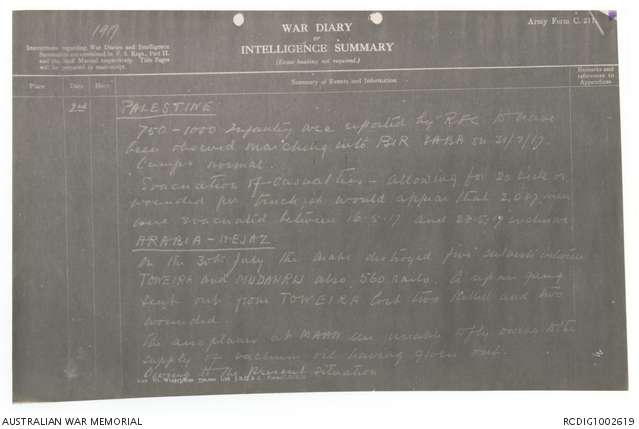 197
WAR DIARY
OR
INTELLIGENCE SUMMARY
(Erase heading not required.)
Army Form C. 211
Instructions regarding War Diaries and Intelligence
Summaries are contained in F. S. Regs., Part II.
and the Staff Manual respectively. Title Pages
will be prepared in manuscript.
Place Date Hour Summary of Events and Information Remarks and references to Appendices
2nd PALESTINE
750-1000 Infantry were reported by RFC to have
been observed marching into BIR SABA on 31/7/17.
Camps normal.
Evacuation of casualties - allowing for 20 sick or
wounded per truck, it would appear that 2,047 men
were evacuated between 16.5.17 and inclusive
ARABIA - HEJAZ
On the 30th July the Arabs destroyed five culverts between
TOWEIRA and also 560 rails. A repair gang
sent out from TOWEIRA lost two killed and two
wounded.
The aeroplanes at MAAN are unable to fly owing to the
supply of vacuum oil having given out.
Owing to the present situation
AUSTRALIAN WAR MEMORIAL
RCDIG1002619